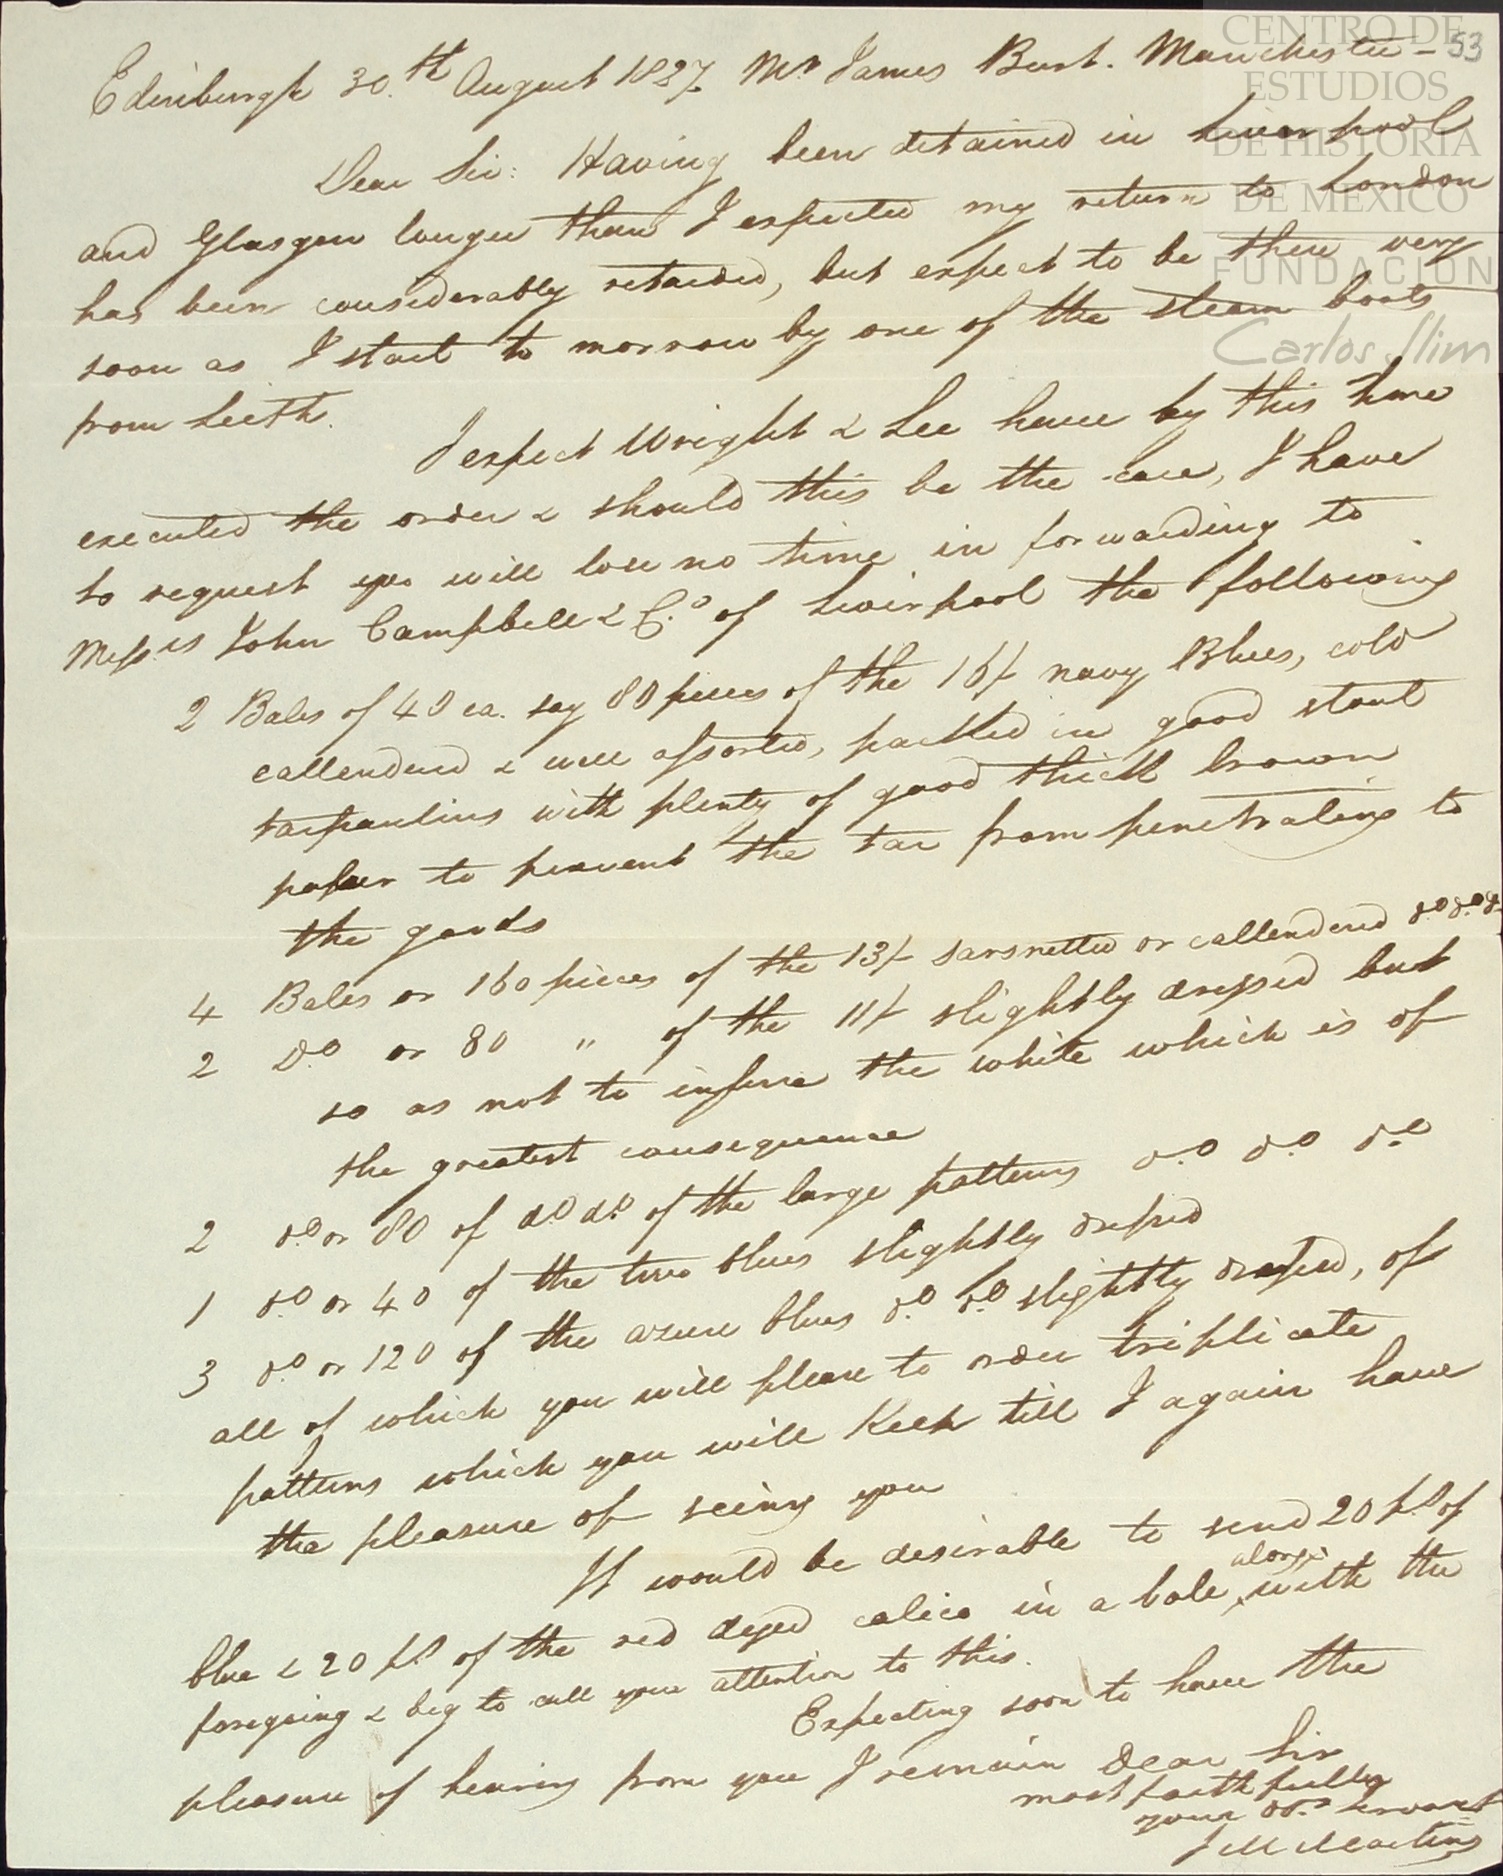 CENTRO DE
ESTUDIOS
DE HISTORIA
DE MEXICO
FUNDACION
Carlos Slim
53
Edinburgh 30.th August 1827. Mr James Burt. Manchester -
Dear Sir: Having been detained in Liverpool
and Glasgow longer than I expected my return to London
has been considerably retarded, but expect to be there very
soon as I start to morrow by one of the steam boats
from Leith.
I expect Wright & Lee have by this time
executed the order & should this be the case, I have
to request you will lose no time in forwarding to
Messrs John Campbell & Co. of Liverpool the following
2 Bales of 40 ea. say 80 pieces of the 16/ navy Blues, cold
callendered & well assorted, packed in good stout
tarpaulins with plenty of good thick brown
paper to prevent the tar from penetrating to
the goods
4 Bales or 160 pieces of the 13/ sarsnetted or callendered do do do
2 Do or 80 " of the 11/ slightly dressed but
so as not to injure the white which is of
the greatest consequence
2 do or 80 of do do of the large patterns do do do
1 do or 40 of the two blues slightly dressed
3 do or 120 of the azure blues do do slightly dressed, of
all of which you will please to order triplicate
patterns which you will keep till I again have
the pleasure of seeing you
It would be desirable to send 20 ps of
blue & 20 ps of the red dyed calico in a bale along with the
foregoing & beg to call your attention to this.
Expecting soon to have the
pleasure of hearing from you I remain Dear Sir
most faithfully
your obt. servant